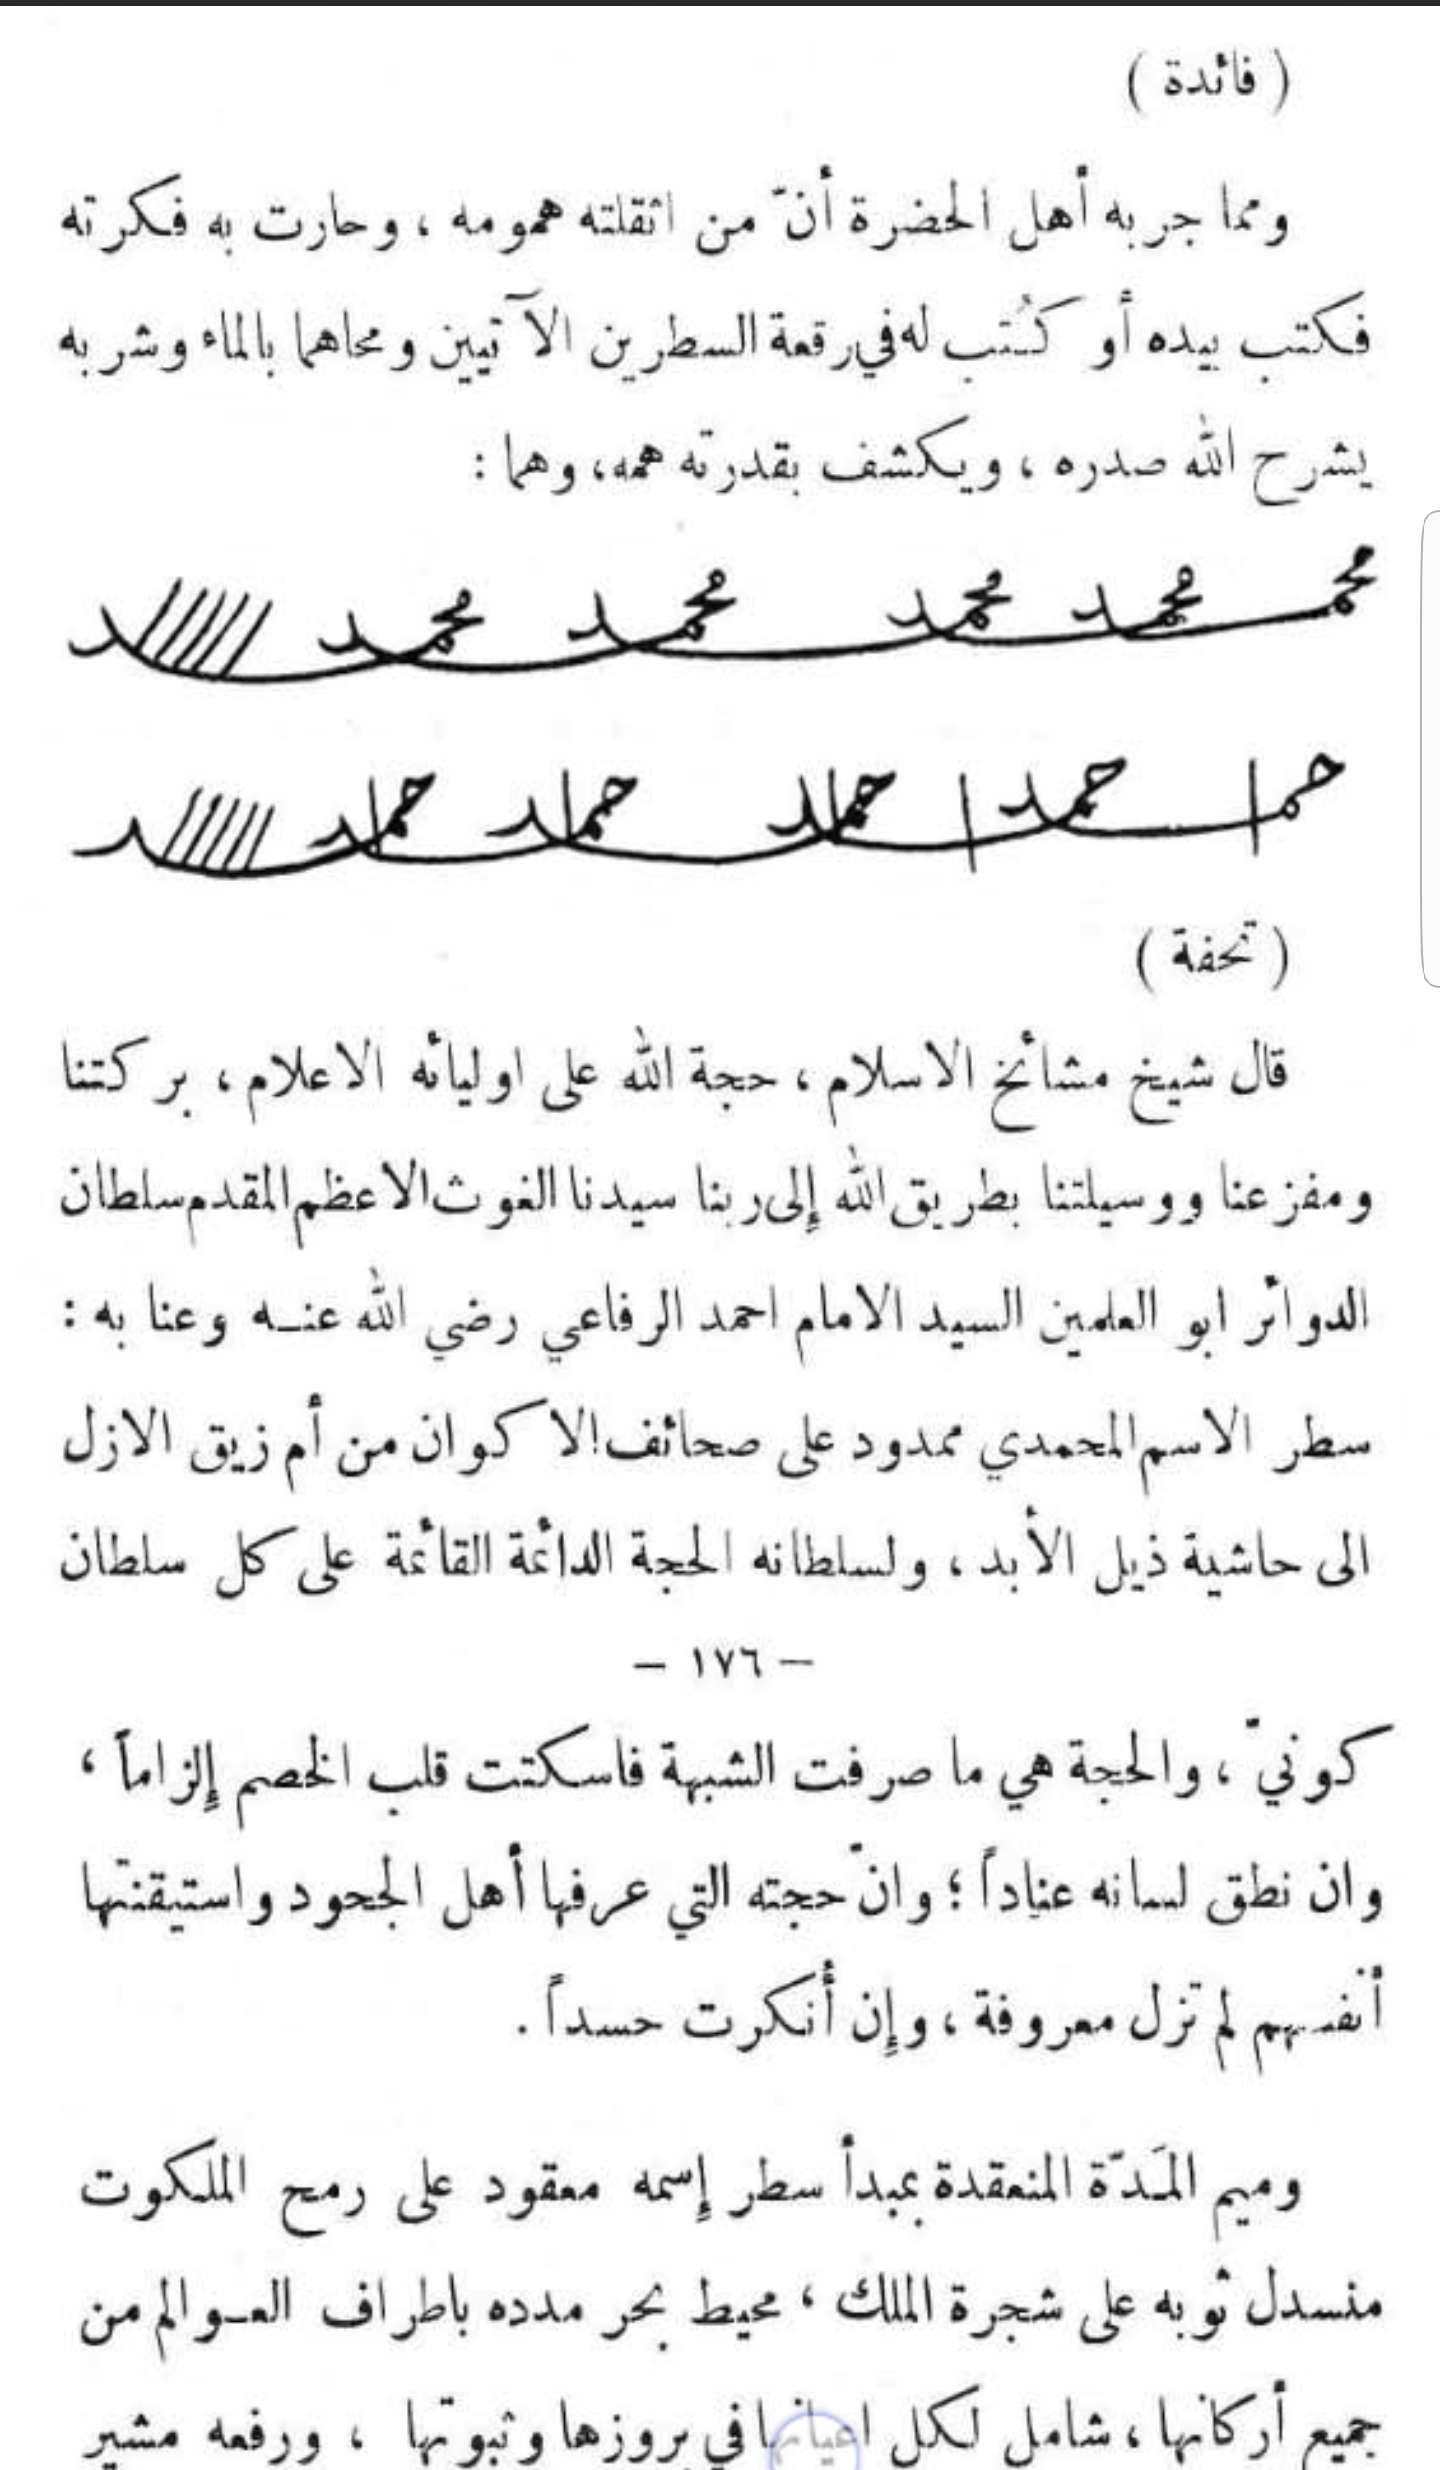 ( فائدة )
ومما جربه أهل الحضرة أنّ من اثقلته همومه ، وحارت به فكرته
فكتب بيده أو كُتب له في رقعة السطرين الآتيين ومحاهما بالماء وشربه
يشرح الله صدره ، ويكشف بقدرته همه، وهما :
محمد محمد محمد محمد محمد
حماد حماد حماد حماد حماد
( تحفة )
قال شيخ مشائخ الاسلام ، حجة الله على اوليائه الاعلام ، بركتنا
ومفزعنا ووسيلتنا بطريق الله إلى ربنا سيدنا الغوث الاعظم المقدم سلطان
الدوائر ابو العلمين السيد الامام احمد الرفاعي رضي الله عنه وعنا به :
سطر الاسم المحمدي ممدود على صحائف الاكوان من أم زيق الازل
الى حاشية ذيل الأبد ، ولسلطانه الحجة الدائمة القائمة على كل سلطان
– ١٧٦ –
كونيّ ، والحجة هي ما صرفت الشبهة فاسكتت قلب الخصم إلزاماً ،
وان نطق لسانه عناداً ؛ وانّ حجته التي عرفها أهل الجحود واستيقنتها
أنفسهم لم تزل معروفة ، وإن أنكرت حسداً .
وميم المَدّة المنعقدة بمبدأ سطر إسمه معقود على رمح الملكوت
منسدل ثوبه على شجرة الملك ، محيط بحر مدده باطراف العوالم من
جميع أركانها ، شامل لكل اعيانها في بروزها وثبوتها ، ورفعه مشير